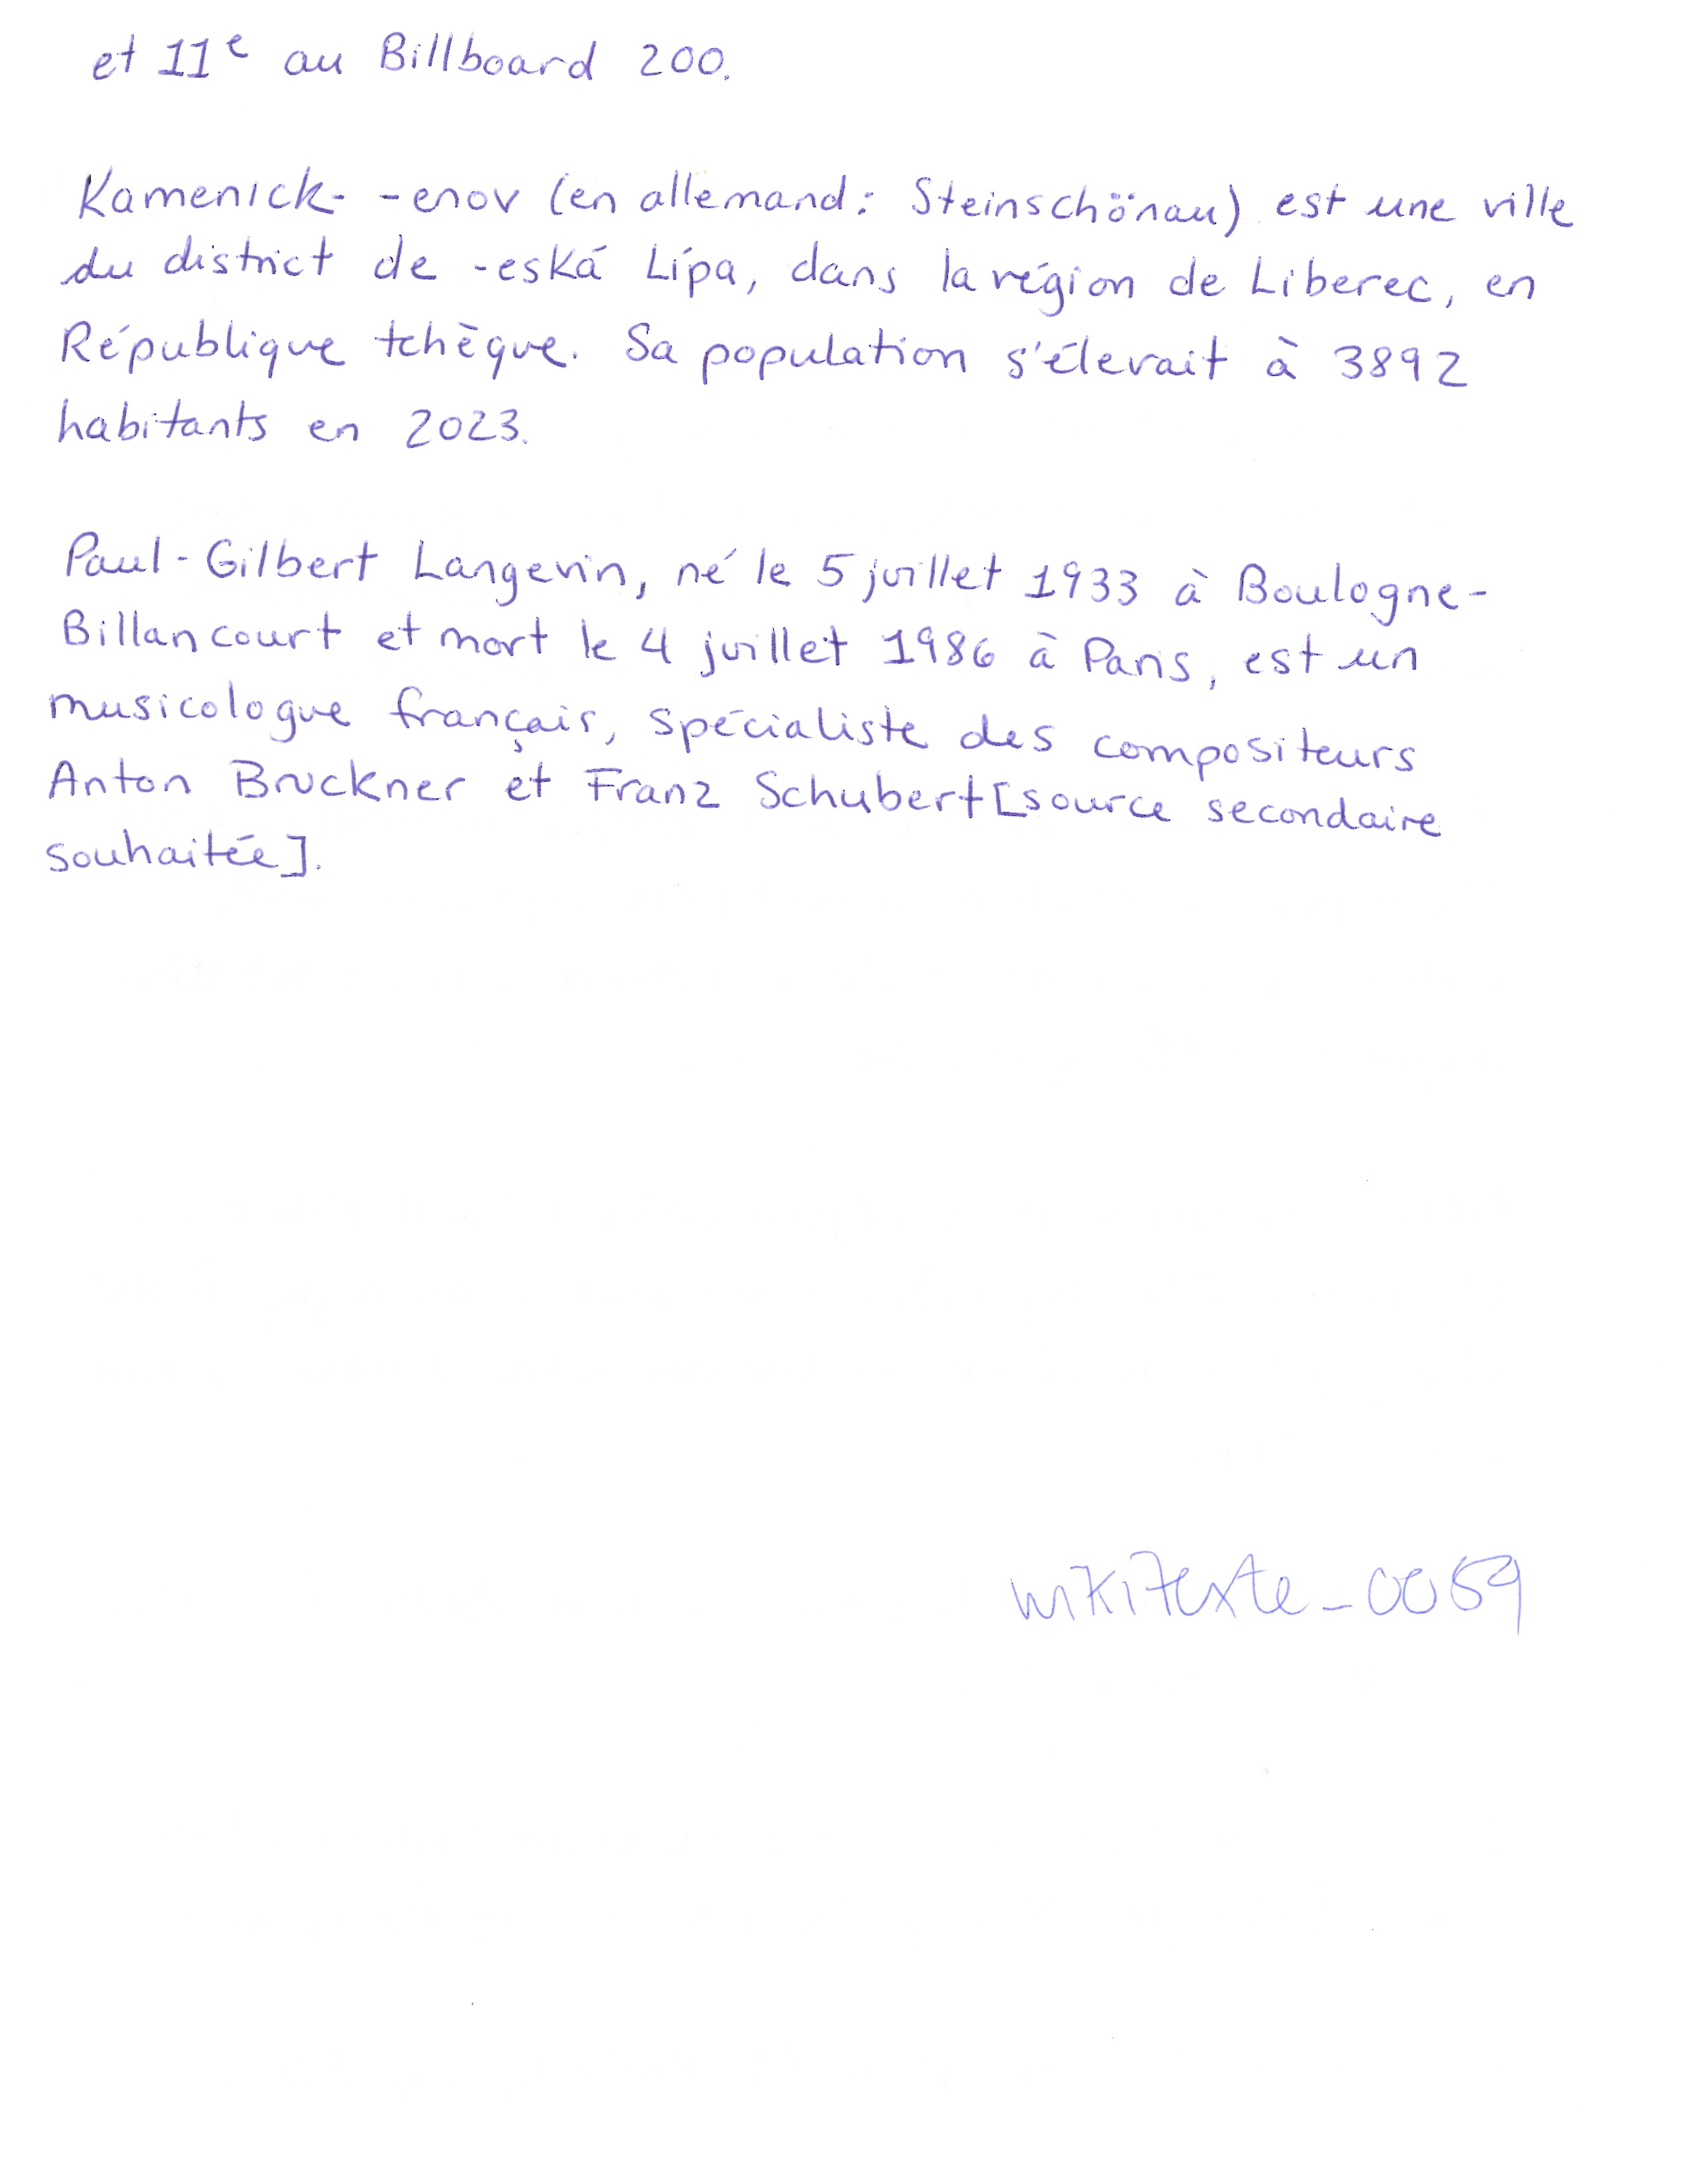 et 11e au Billboard 200.
Kamenick- -enov (en allemand: Steinschönau) est une ville
du district de -eská Lípa, dans la région de Liberec, en
République tchèque. Sa population s'élevait à 3892
habitants en 2023.
Paul-Gilbert Langevin, né le 5 juillet 1933 à Boulogne-
Billancourt et mort le 4 juillet 1986 à Paris, est un
musicologue français, spécialiste des compositeurs
Anton Bruckner et Franz Schubert[source secondaire
souhaitée].
wikiTexte_0059